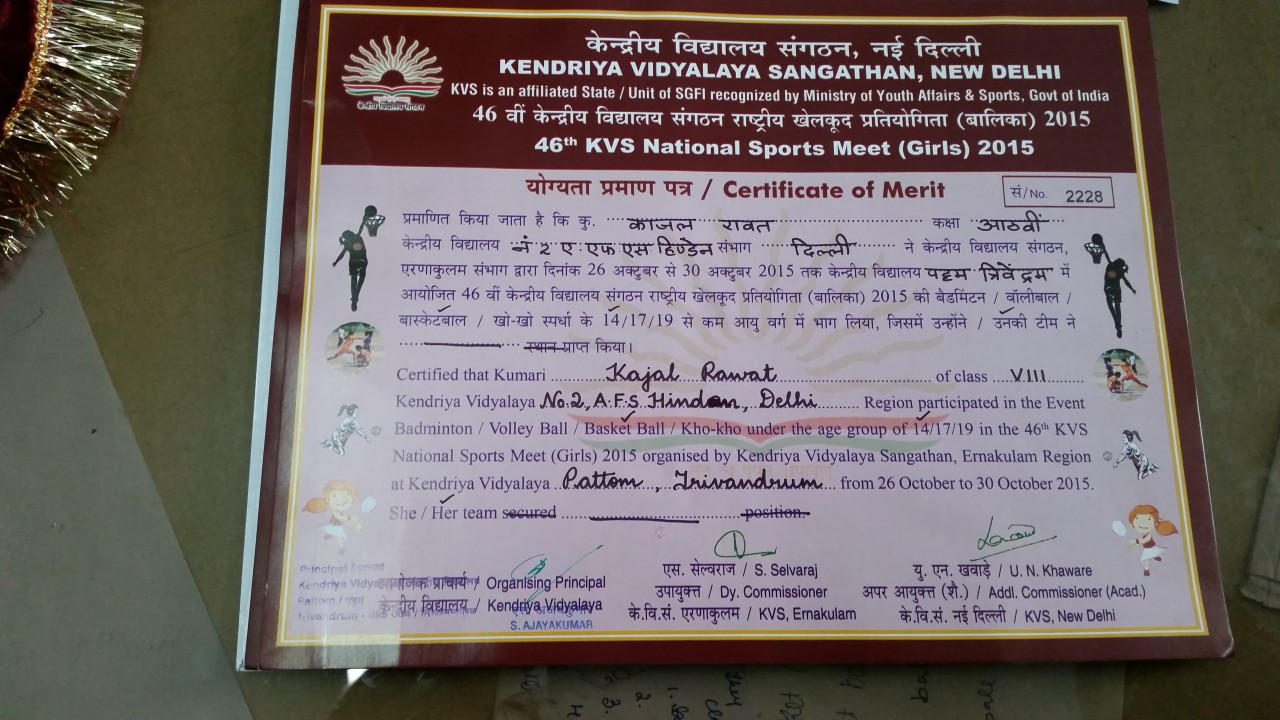 केन्द्रीय विद्यालय संगठन, नई दिल्ली
KENDRIYA VIDYALAYA SANGATHAN, NEW DELHI
KVS is an affiliated State / Unit of SGFI recognized by Ministry of Youth Affairs & Sports, Govt of India
46 वीं केन्द्रीय विद्यालय संगठन राष्ट्रीय खेलकूद प्रतियोगिता (बालिका) 2015
46th KVS National Sports Meet (Girls) 2015
केन्द्रीय विद्यालय संगठन
योग्यता प्रमाण पत्र / Certificate of Merit
सं/No. 2228
प्रमाणित किया जाता है कि कु. काजल रावत कक्षा आठवीं
केन्द्रीय विद्यालय नं 2 ए एफ एस हिण्डेन संभाग दिल्ली ने केन्द्रीय विद्यालय संगठन,
एरणाकुलम संभाग द्वारा दिनांक 26 अक्टुबर से 30 अक्टुबर 2015 तक केन्द्रीय विद्यालय पट्टम त्रिवेंद्रम में
आयोजित 46 वीं केन्द्रीय विद्यालय संगठन राष्ट्रीय खेलकूद प्रतियोगिता (बालिका) 2015 की बैडमिंटन / वॉलीबाल /
बास्केटबाल / खो-खो स्पर्धा के 14/17/19 से कम आयु वर्ग में भाग लिया, जिसमें उन्होंने / उनकी टीम ने
स्थान प्राप्त किया।
Certified that Kumari Kajal Rawat of class VIII
Kendriya Vidyalaya No.2, A.F.S Hindon, Delhi Region participated in the Event
Badminton / Volley Ball / Basket Ball / Kho-kho under the age group of 14/17/19 in the 46th KVS
National Sports Meet (Girls) 2015 organised by Kendriya Vidyalaya Sangathan, Ernakulam Region
at Kendriya Vidyalaya Pattom, Trivandrum from 26 October to 30 October 2015.
She / Her team secured position.
Principal
Kendriya Vidya
Pattom / पट्टम
Trivandrum
आयोजक प्राचार्य / Organising Principal
केन्द्रीय विद्यालय / Kendriya Vidyalaya
S. AJAYAKUMAR
एस. सेल्वराज / S. Selvaraj
उपायुक्त / Dy. Commissioner
के.वि.सं. एरणाकुलम / KVS, Ernakulam
यु. एन. खवाड़े / U. N. Khaware
अपर आयुक्त (शै.) / Addl. Commissioner (Acad.)
के.वि.सं. नई दिल्ली / KVS, New Delhi